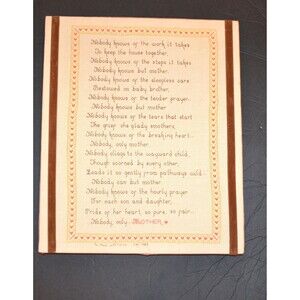 Nobody knows of the work it takes
To keep the house together,
Nobody knows of the steps it takes
Nobody knows but mother.
Nobody knows of the sleepless care
Bestowed on baby brother,
Nobody knows of the tender prayer,
Nobody knows but mother
Nobody knows of the tears that start
The grief she gladly smothers,
Nobody knows of the breaking heart-
Nobody, only mother.
Nobody clings to the wayward child,
Though scorned by every other,
Leads it so gently from pathways wild
Nobody can but mother
Nobody knows of the hourly prayer
For each son and daughter,
Pride of her heart, so pure, so fair
Nobody, only MOTHER